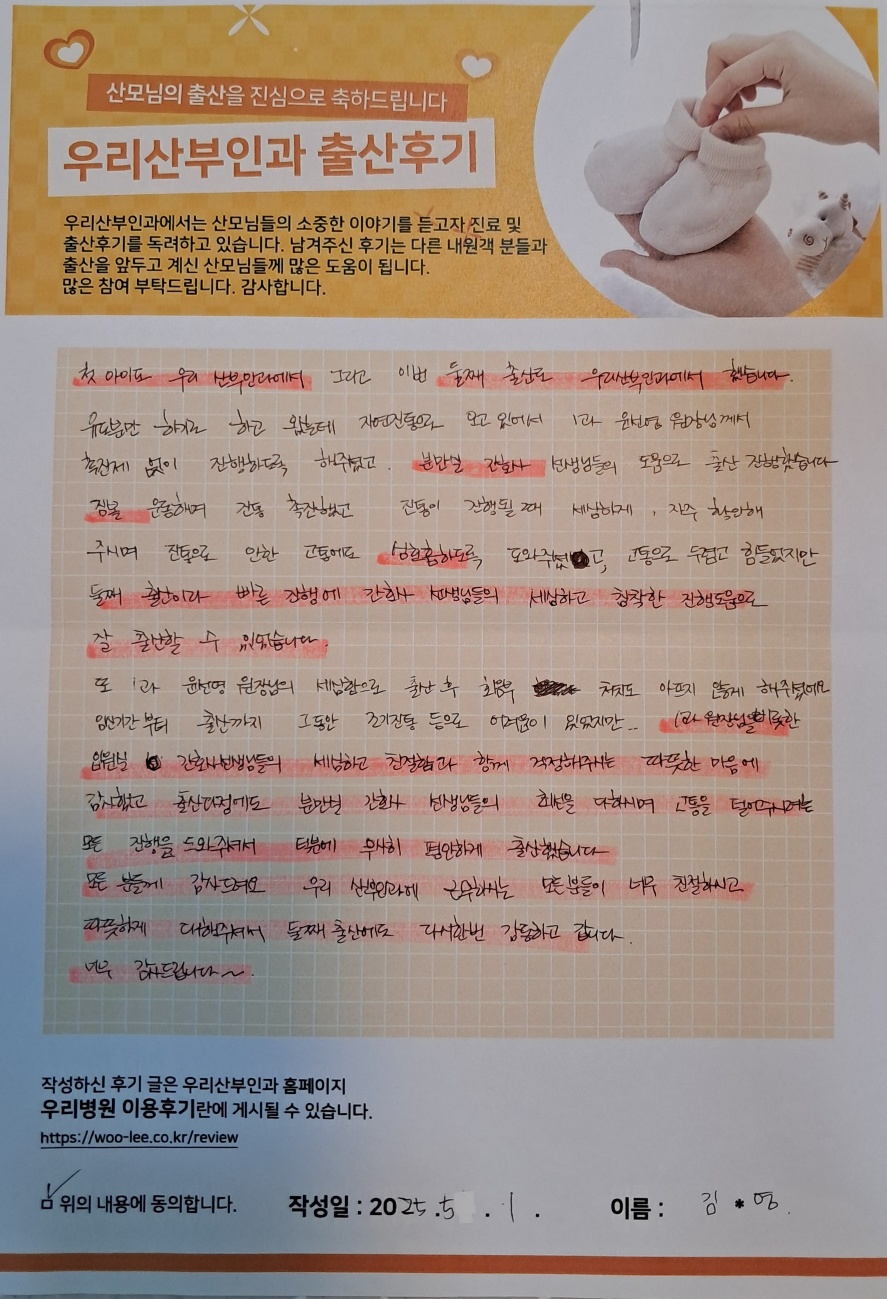 산모님의 출산을 진심으로 축하드립니다
우리산부인과 출산후기
우리산부인과에서는 산모님들의 소중한 이야기를 듣고자 진료 및
출산후기를 독려하고 있습니다. 남겨주신 후기는 다른 내원객 분들과
출산을 앞두고 계신 산모님들께 많은 도움이 됩니다.
많은 참여 부탁드립니다. 감사합니다.
첫 아이도 우리 산부인과에서 그리고 이번 둘째 출산도 우리산부인과에서 했습니다.
유도분만 하기로 하고 왔는데 자연진통으로 오고 있어서 1과 윤선영 원장님께서
촉진제 없이 진행하도록 해주셨고. 분만실 간호사 선생님들의 도움으로 출산 진행했습니다
짐볼 운동하며 진통 촉진했고 진통이 진행될 때 세심하게, 자주 확인해
주시며 진통으로 인한 고통에도 심호흡하도록 도와주셨고, 고통으로 두렵고 힘들었지만
둘째 출산이라 빠른 진행에 간호사 선생님들의 세심하고 침착한 진행도움으로
잘 출산할 수 있었습니다.
또 1과 윤선영 원장님의 세심함으로 출산 후 회음부 처치도 아프지 않게 해주셨어요
임신기간부터 출산까지 그동안 조기진통 등으로 어려움이 있었지만.. 1과 원장님을 비롯한
입원실 간호사선생님들의 세심하고 친절함과 함께 걱정해주시는 따뜻한 마음에
감사했고 출산과정에도 분만실 간호사 선생님들의 최선을 다하시며 고통을 덜어주시려는
모든 진행을 도와주셔서 덕분에 무사히 편안하게 출산했습니다
모든 분들께 감사드려요 우리 산부인과에 근무하시는 모든분들이 너무 친절하시고
따뜻하게 대해주셔서 둘째 출산에도 다시한번 감동하고 갑니다.
너무 감사드립니다~.
작성하신 후기 글은 우리산부인과 홈페이지
우리병원 이용후기란에 게시될 수 있습니다.
https://woo-lee.co.kr/review
위의 내용에 동의합니다. 작성일 : 2025.5 . 1 . 이름 : 김 * 영.